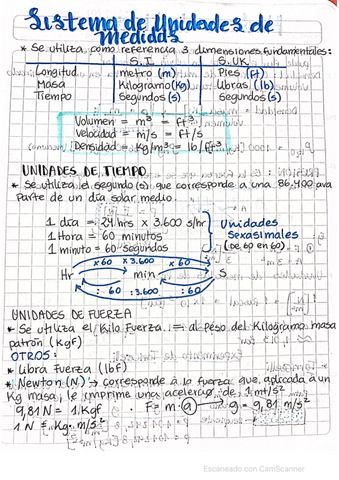 Sistema de Unidades de
medidas
* Se utiliza como referencia 3 dimensiones fundamentales:
S.I. S.UK.
Longitud metro (m) Pies (ft)
Masa Kilogramo (Kg) Libras (lb)
Tiempo Segundos (s) Segundos (s)
Volumen = m³ = ft³
Velocidad = m/s = ft/s
Densidad = Kg/m³ = lb/ft³
UNIDADES DE TIEMPO
* Se utiliza el segundo (s), que corresponde a una 86,400 ava
Parte de un día solar medio.
1 día = 24 hrs x 3.600 s/hr
1 Hora = 60 minutos
1 minuto = 60 segundos
Unidades
Sexasimales
(DE 60 en 60)
x60 x3.600 x60
Hr min S
: 60 :3.600 : 60
UNIDADES DE FUERZA
* Se utiliza el Kilo Fuerza = al peso del Kilogramo masa
patrón (Kgf)
OTROS:
* Libra Fuerza (lbf)
* Newton (N) → corresponde a la fuerza que aplicada a un
Kg masa, le imprime una acelerac. de 1 mt/s²
9,81 N = 1 Kgf . F = m · a → g = 9,81 m/s²
1 N = Kg · m/s²
Escaneado con CamScanner